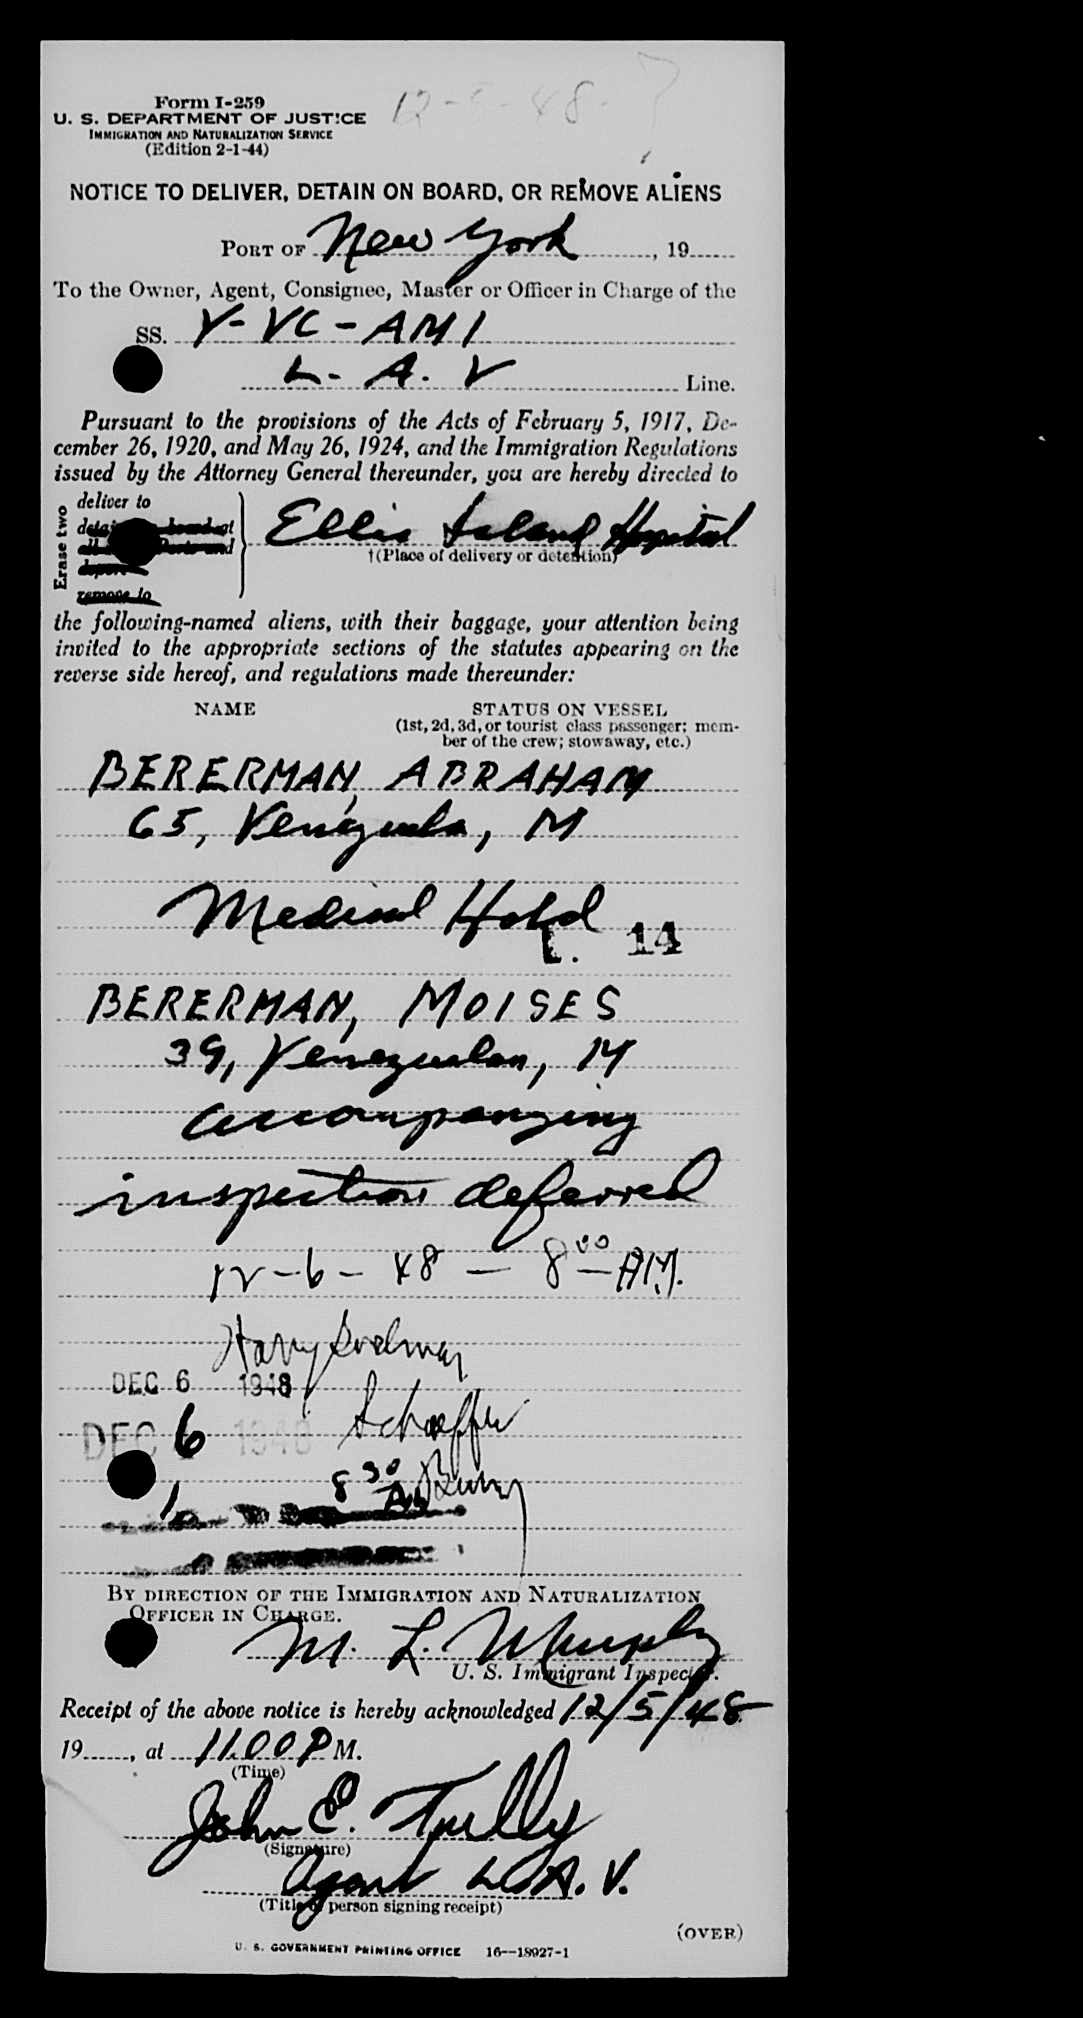 12-5-48-
Form I-259
U. S. DEPARTMENT OF JUSTICE
IMMIGRATION AND NATURALIZATION SERVICE
(Edition 2-1-44)
NOTICE TO DELIVER, DETAIN ON BOARD, OR REMOVE ALIENS
PORT OF New York, 19
To the Owner, Agent, Consignee, Master or Officer in Charge of the
SS. Y-VC-AMI
L. A. V Line.
Pursuant to the provisions of the Acts of February 5, 1917, De-
cember 26, 1920, and May 26, 1924, and the Immigration Regulations
issued by the Attorney General thereunder, you are hereby directed to
Erase two
deliver to
remove to
Ellis Island Hospital
†(Place of delivery or detention)
the following-named aliens, with their baggage, your attention being
invited to the appropriate sections of the statutes appearing on the
reverse side hereof, and regulations made thereunder:
NAME STATUS ON VESSEL
(1st, 2d, 3d, or tourist class passenger; mem-
ber of the crew; stowaway, etc.)
BERERMAN, ABRAHAM
65, Venezuela, M
Medical Hold
L. 14
BERERMAN, MOISES
39, Venezuelan, M
accompanying
inspection deferred
12-6-48 — 8 00 AM.
Harry
DEC 6 1948
Schaeffer
DEC 6 1948
8 30
BY DIRECTION OF THE IMMIGRATION AND NATURALIZATION
OFFICER IN CHARGE.
M. L. Murphy
U. S. Immigrant Inspector.
Receipt of the above notice is hereby acknowledged 12/5/48
19, at 11.00 P M.
(Time)
John E. Tully
(Signature)
Agent L. A. V.
(Title of person signing receipt)
(OVER)
U. S. GOVERNMENT PRINTING OFFICE 16—18927-1